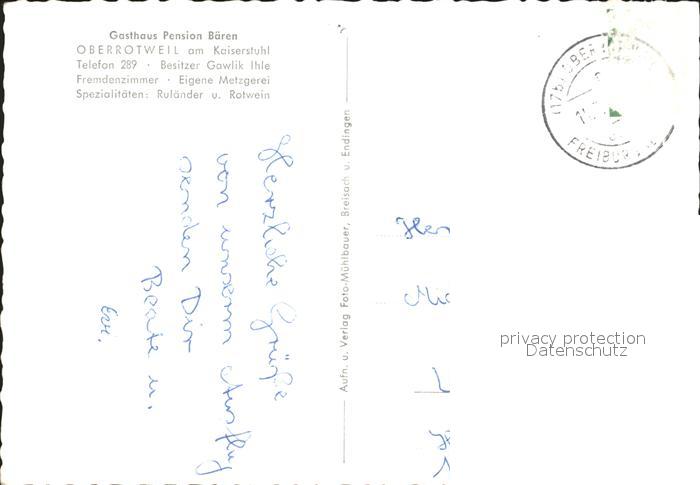 Gasthaus Pension Bären
OBERROTWEIL am Kaiserstuhl
Telefon 289 · Besitzer Gawlik Ihle
Fremdenzimmer · Eigene Metzgerei
Spezialitäten: Ruländer u. Rotwein
Herzliche Grüße
von unserm Ausflug
senden Dir
Beate u.
Aufn. u. Verlag Foto-Mühlbauer, Breisach u. Endingen
FREIBURG
privacy protection
Datenschutz